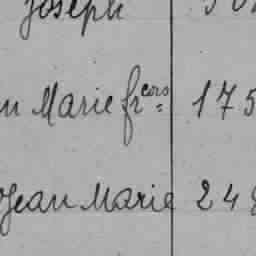 Joseph
Marie frcors 175
Jean Marie 248